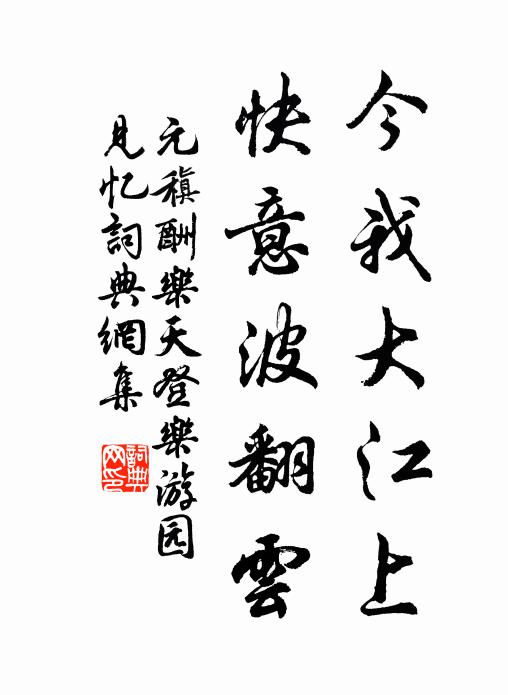 今我大江上
快意波翻雲
元稹酬樂天登樂游园
見忆詞典網集
詞典网印